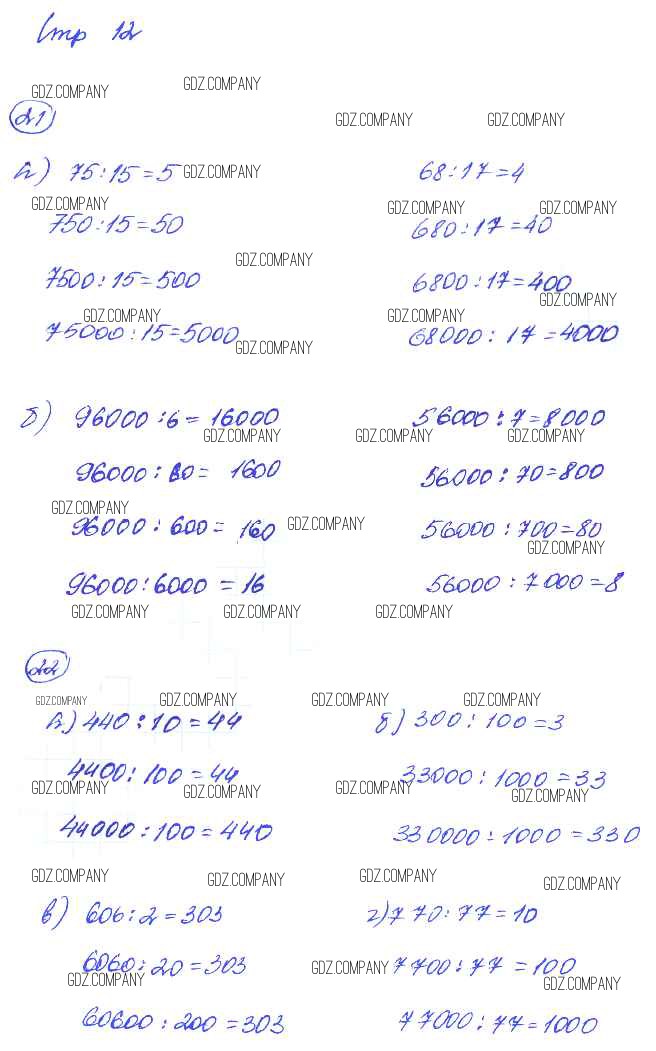 Стр 12
GDZ.COMPANY GDZ.COMPANY
21 GDZ.COMPANY GDZ.COMPANY
а) 75:15=5 GDZ.COMPANY 68:17=4
GDZ.COMPANY GDZ.COMPANY GDZ.COMPANY
750:15=50 680:17=40
GDZ.COMPANY
7500:15=500 6800:17=400
GDZ.COMPANY
GDZ.COMPANY GDZ.COMPANY
75000:15=5000 68000:17=4000
GDZ.COMPANY
б) 96000:6=16000 56000:7=8000
GDZ.COMPANY GDZ.COMPANY GDZ.COMPANY
96000:60=1600 56000:70=800
GDZ.COMPANY
96000:600=160 GDZ.COMPANY 56000:700=80
GDZ.COMPANY
96000:6000=16 56000:7000=8
GDZ.COMPANY GDZ.COMPANY GDZ.COMPANY
22
GDZ.COMPANY GDZ.COMPANY GDZ.COMPANY GDZ.COMPANY
а) 440:10=44 б) 300:100=3
4400:100=44 33000:1000=33
GDZ.COMPANY GDZ.COMPANY GDZ.COMPANY GDZ.COMPANY
44000:100=440 330000:1000=330
GDZ.COMPANY GDZ.COMPANY GDZ.COMPANY GDZ.COMPANY
в) 606:2=303 г) 770:77=10
6060:20=303 GDZ.COMPANY 7700:77=100
GDZ.COMPANY GDZ.COMPANY
60600:200=303 77000:77=1000